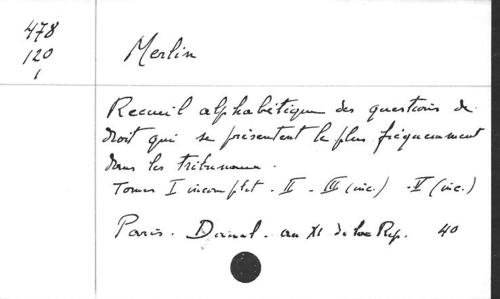 478
120
1
Merlin
Recueil alphabétique des questions de
droit qui se présentent le plus fréquemment
dans les tribunaux.
Tomes I incomplet - II - III (inc.) - V (inc.)
Paris. an XI de la Rep. 40